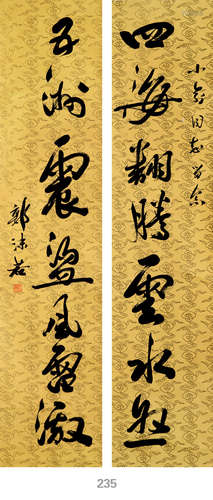 同志留念
四海翻騰雲水怒
五洲震盪风雷激
郭沫若
235